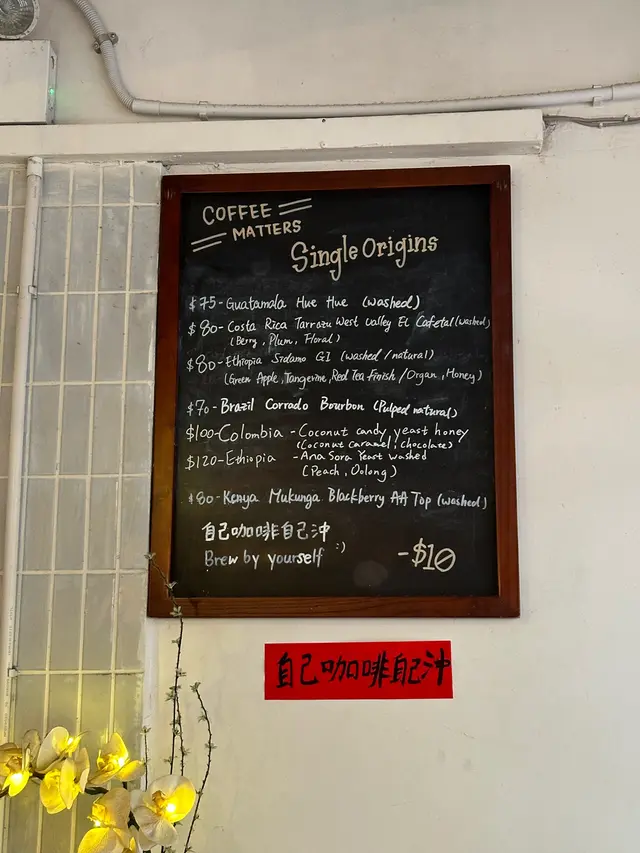 COFFEE
MATTERS
Single Origins
$75-Guatamala Hue Hue (washed)
$80-Costa Rica Tarrazu West Valley El Cafetal (washed)
(Berry, Plum, Floral)
$80-Ethiopia Sidamo G1 (washed/natural)
(Green Apple, Tangerine, Red Tea Finish/Organ, Honey)
$70-Brazil Corrado Bourbon (Pulped natural)
$100-Colombia - Coconut candy yeast honey
(Coconut caramel, chocolate)
$120-Ethiopia - Ana Sora Yeast washed
(Peach, Oolong)
$80-Kenya Mukunga Blackberry AA Top (washed)
自己咖啡自己沖
Brew by yourself :)
-$10
自己咖啡自己沖